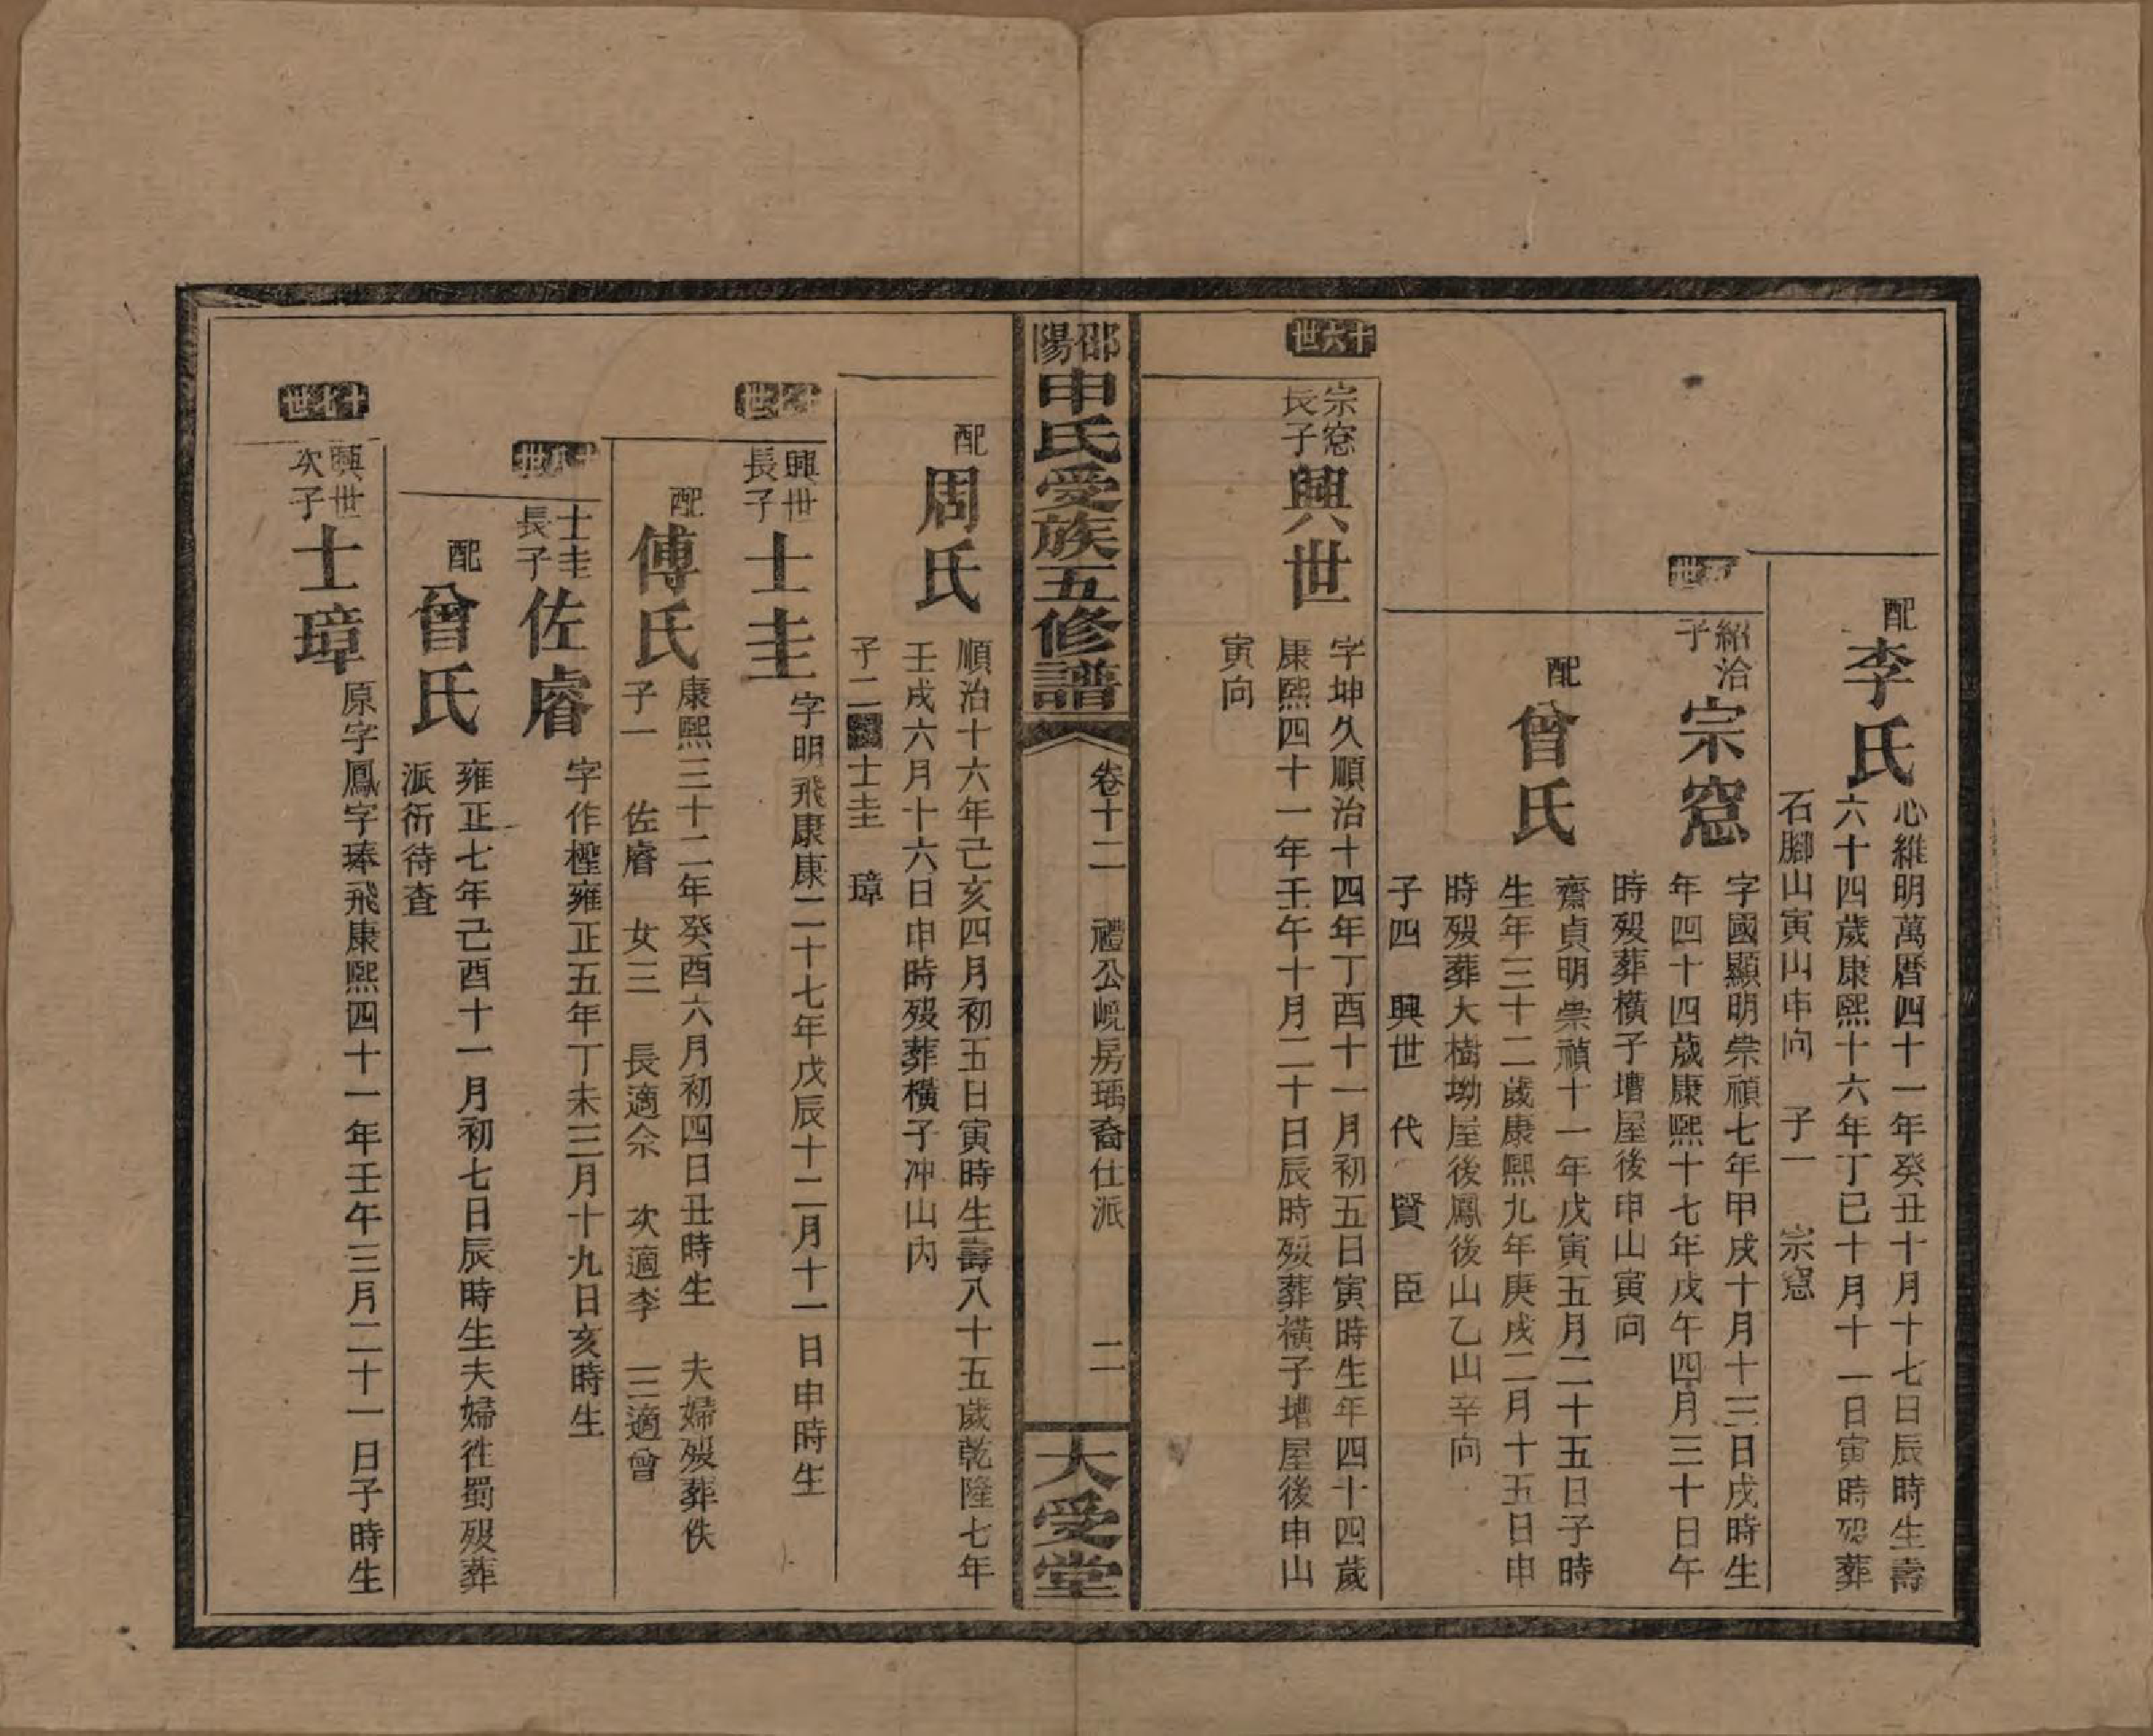 配李氏
心維明萬曆四十一年癸丑十月十七日辰時生壽
六十四歲康熙十六年丁巳十月十一日寅時歿葬
石腳山寅山申向 子一 宗窓
世
紹洽子
宗窓
字國顯明崇禎七年甲戌十月十三日戌時生
年四十四歲康熙十七年戊午四月三十日午
時歿葬橫子壋屋後申山寅向
配曾氏
齋貞明崇禎十一年戊寅五月二十五日子時
生年三十二歲康熙九年庚戌二月十五日申
時歿葬大樹坳屋後鳳後山乙山辛向
子四 興世 代 賢 臣
十六世
宗窓長子
興世
字坤久順治十四年丁酉十一月初五日寅時生年四十四歲
康熙四十一年壬午十月二十日辰時歿葬橫子壋屋後申山
寅向
邵陽申氏受族五修譜
卷十二 禮公峴房瑀裔仕派 二
大受堂
配周氏
順治十六年己亥四月初五日寅時生壽八十五歲乾隆七年
壬戌六月十六日申時歿葬橫子冲山內
子二 士圭 璋
十七世
興世長子
士圭
字明飛康康二十七年戊辰十二月十一日申時生
配傅氏
康熙三十二年癸酉六月初四日丑時生 夫婦歿葬佚
子一 佐睿 女三 長適佘 次適李 三適曾
十八世
士圭長子
佐睿
字作檉雍正五年丁未三月十九日亥時生
配曾氏
雍正七年己酉十一月初七日辰時生夫婦徃蜀歿葬
派衍待查
十七世
興世次子
士璋
原字鳳字琫飛康熙四十一年壬午三月二十一日子時生